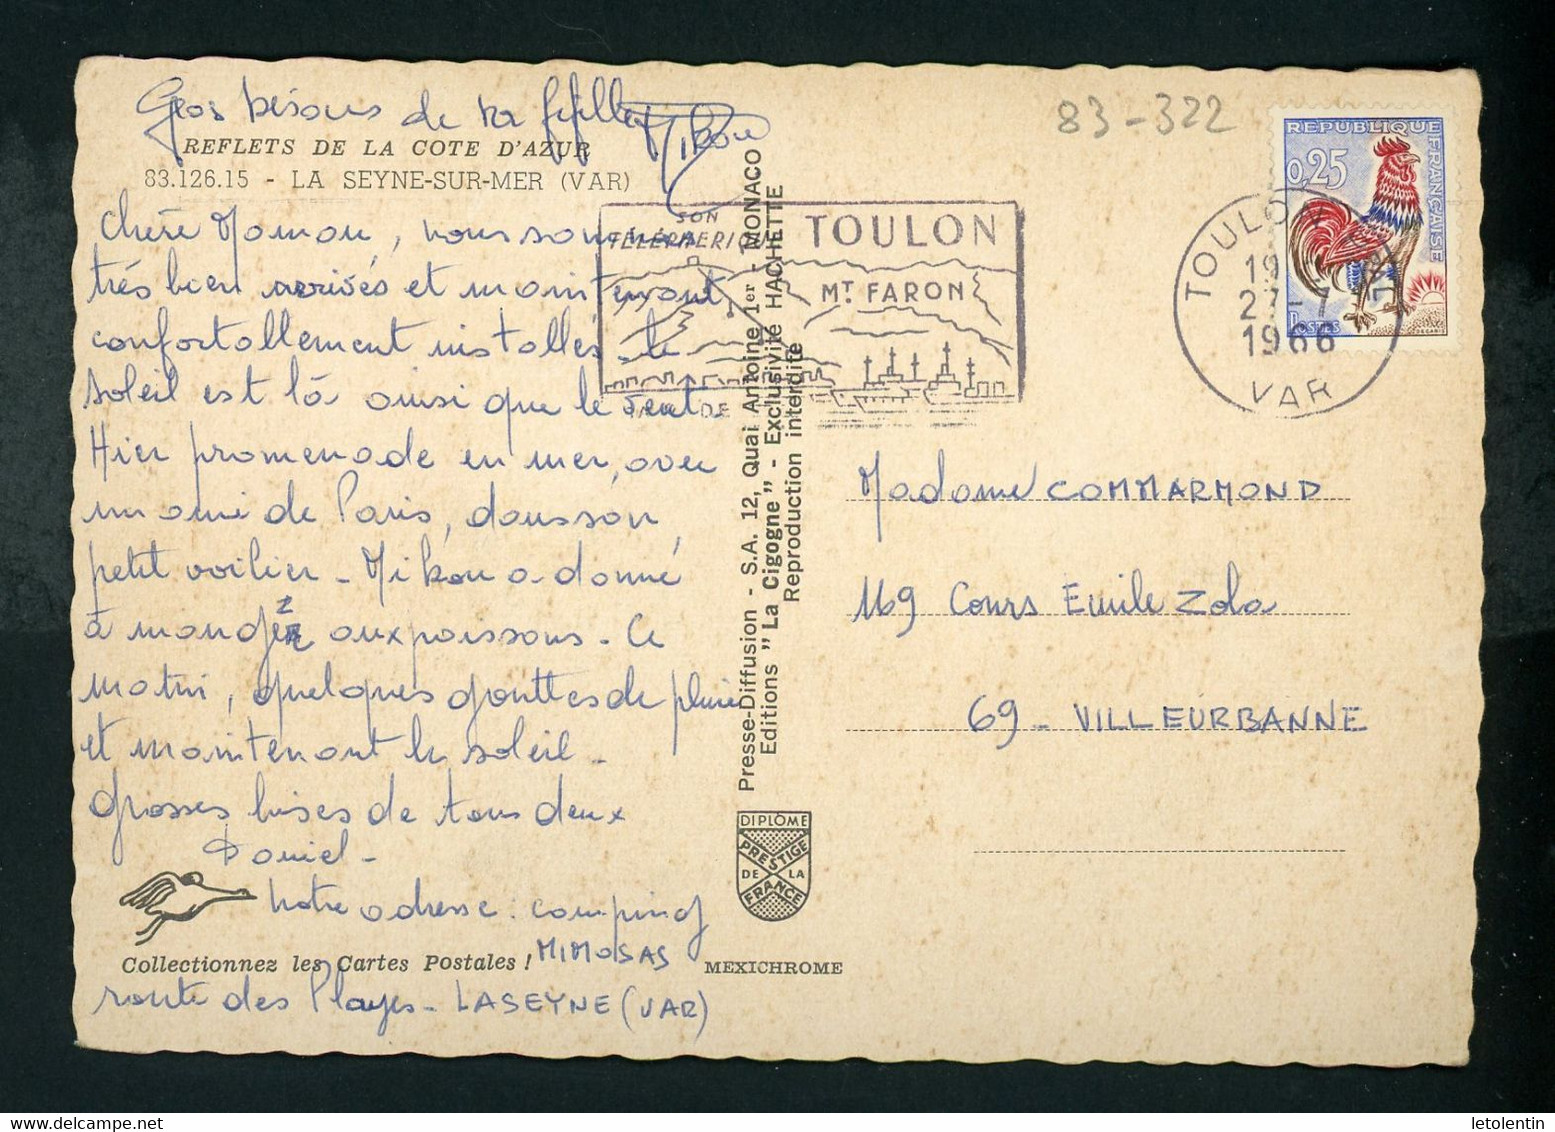 Gros bisous de ta fifille Mikou
REFLETS DE LA COTE D'AZUR
83.126.15 - LA SEYNE-SUR-MER (VAR)
Chère Maman, nous sommes
très bien arrivés et maintenant
confortallement installés. le
soleil est là ainsi que le vent.
Hier promenade en mer, avec
un ami de Paris, dans son
petit voilier - Mikou a donné
à manger aux poissons - Ce
matin, quelques gouttes de pluie
et maintenant le soleil -
Grosses bises de tous deux
Daniel -
notre adresse : camping
MIMOSAS
Collectionnez les Cartes Postales !
route des Plages - LA SEYNE (VAR)
MEXICHROME
Presse-Diffusion - S.A. 12, Quai Antoine 1er - MONACO
Editions "La Cigogne" - Exclusivité HACHETTE
Reproduction interdite
DIPLÔME
PRESTIGE
DE LA
FRANCE
SON
TÉLÉPHERIQUE
TOULON
MT FARON
83-322
REPUBLIQUE FRANÇAISE
0,25
POSTES
DECARIS
TOULON
19
27-7
1966
VAR
Madame COMMARMOND
169 Cours Emile Zola
69 - VILLEURBANNE
letolentin